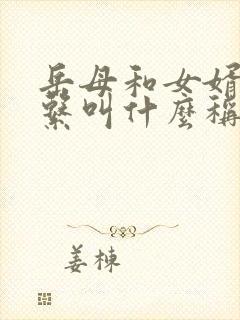 岳母和女婿
繫叫什麼稱
姜棟